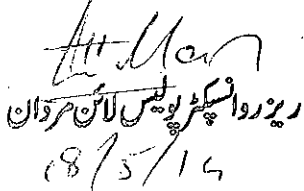 ریزرو انسپکٹر پولیس لائن مردان
18/5/14